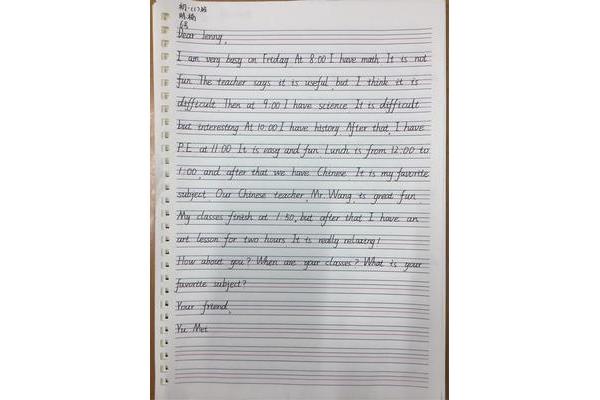 初一(1)班
6号
Dear Jenny,
I am very busy on Friday. At 8:00 I have math. It is not
fun. The teacher says it is useful, but I think it is
difficult. Then at 9:00 I have science. It is difficult
but interesting. At 10:00 I have history. After that, I have
P.E. at 11:00. It is easy and fun. Lunch is from 12:00 to
1:00, and after that we have Chinese. It is my favorite
subject. Our Chinese teacher, Mr. Wang, is great fun.
My classes finish at 1:50, but after that I have an
art lesson for two hours. It is really relaxing!
How about you? When are your classes? What is your
favorite subject?
Your friend,
Yu Mei